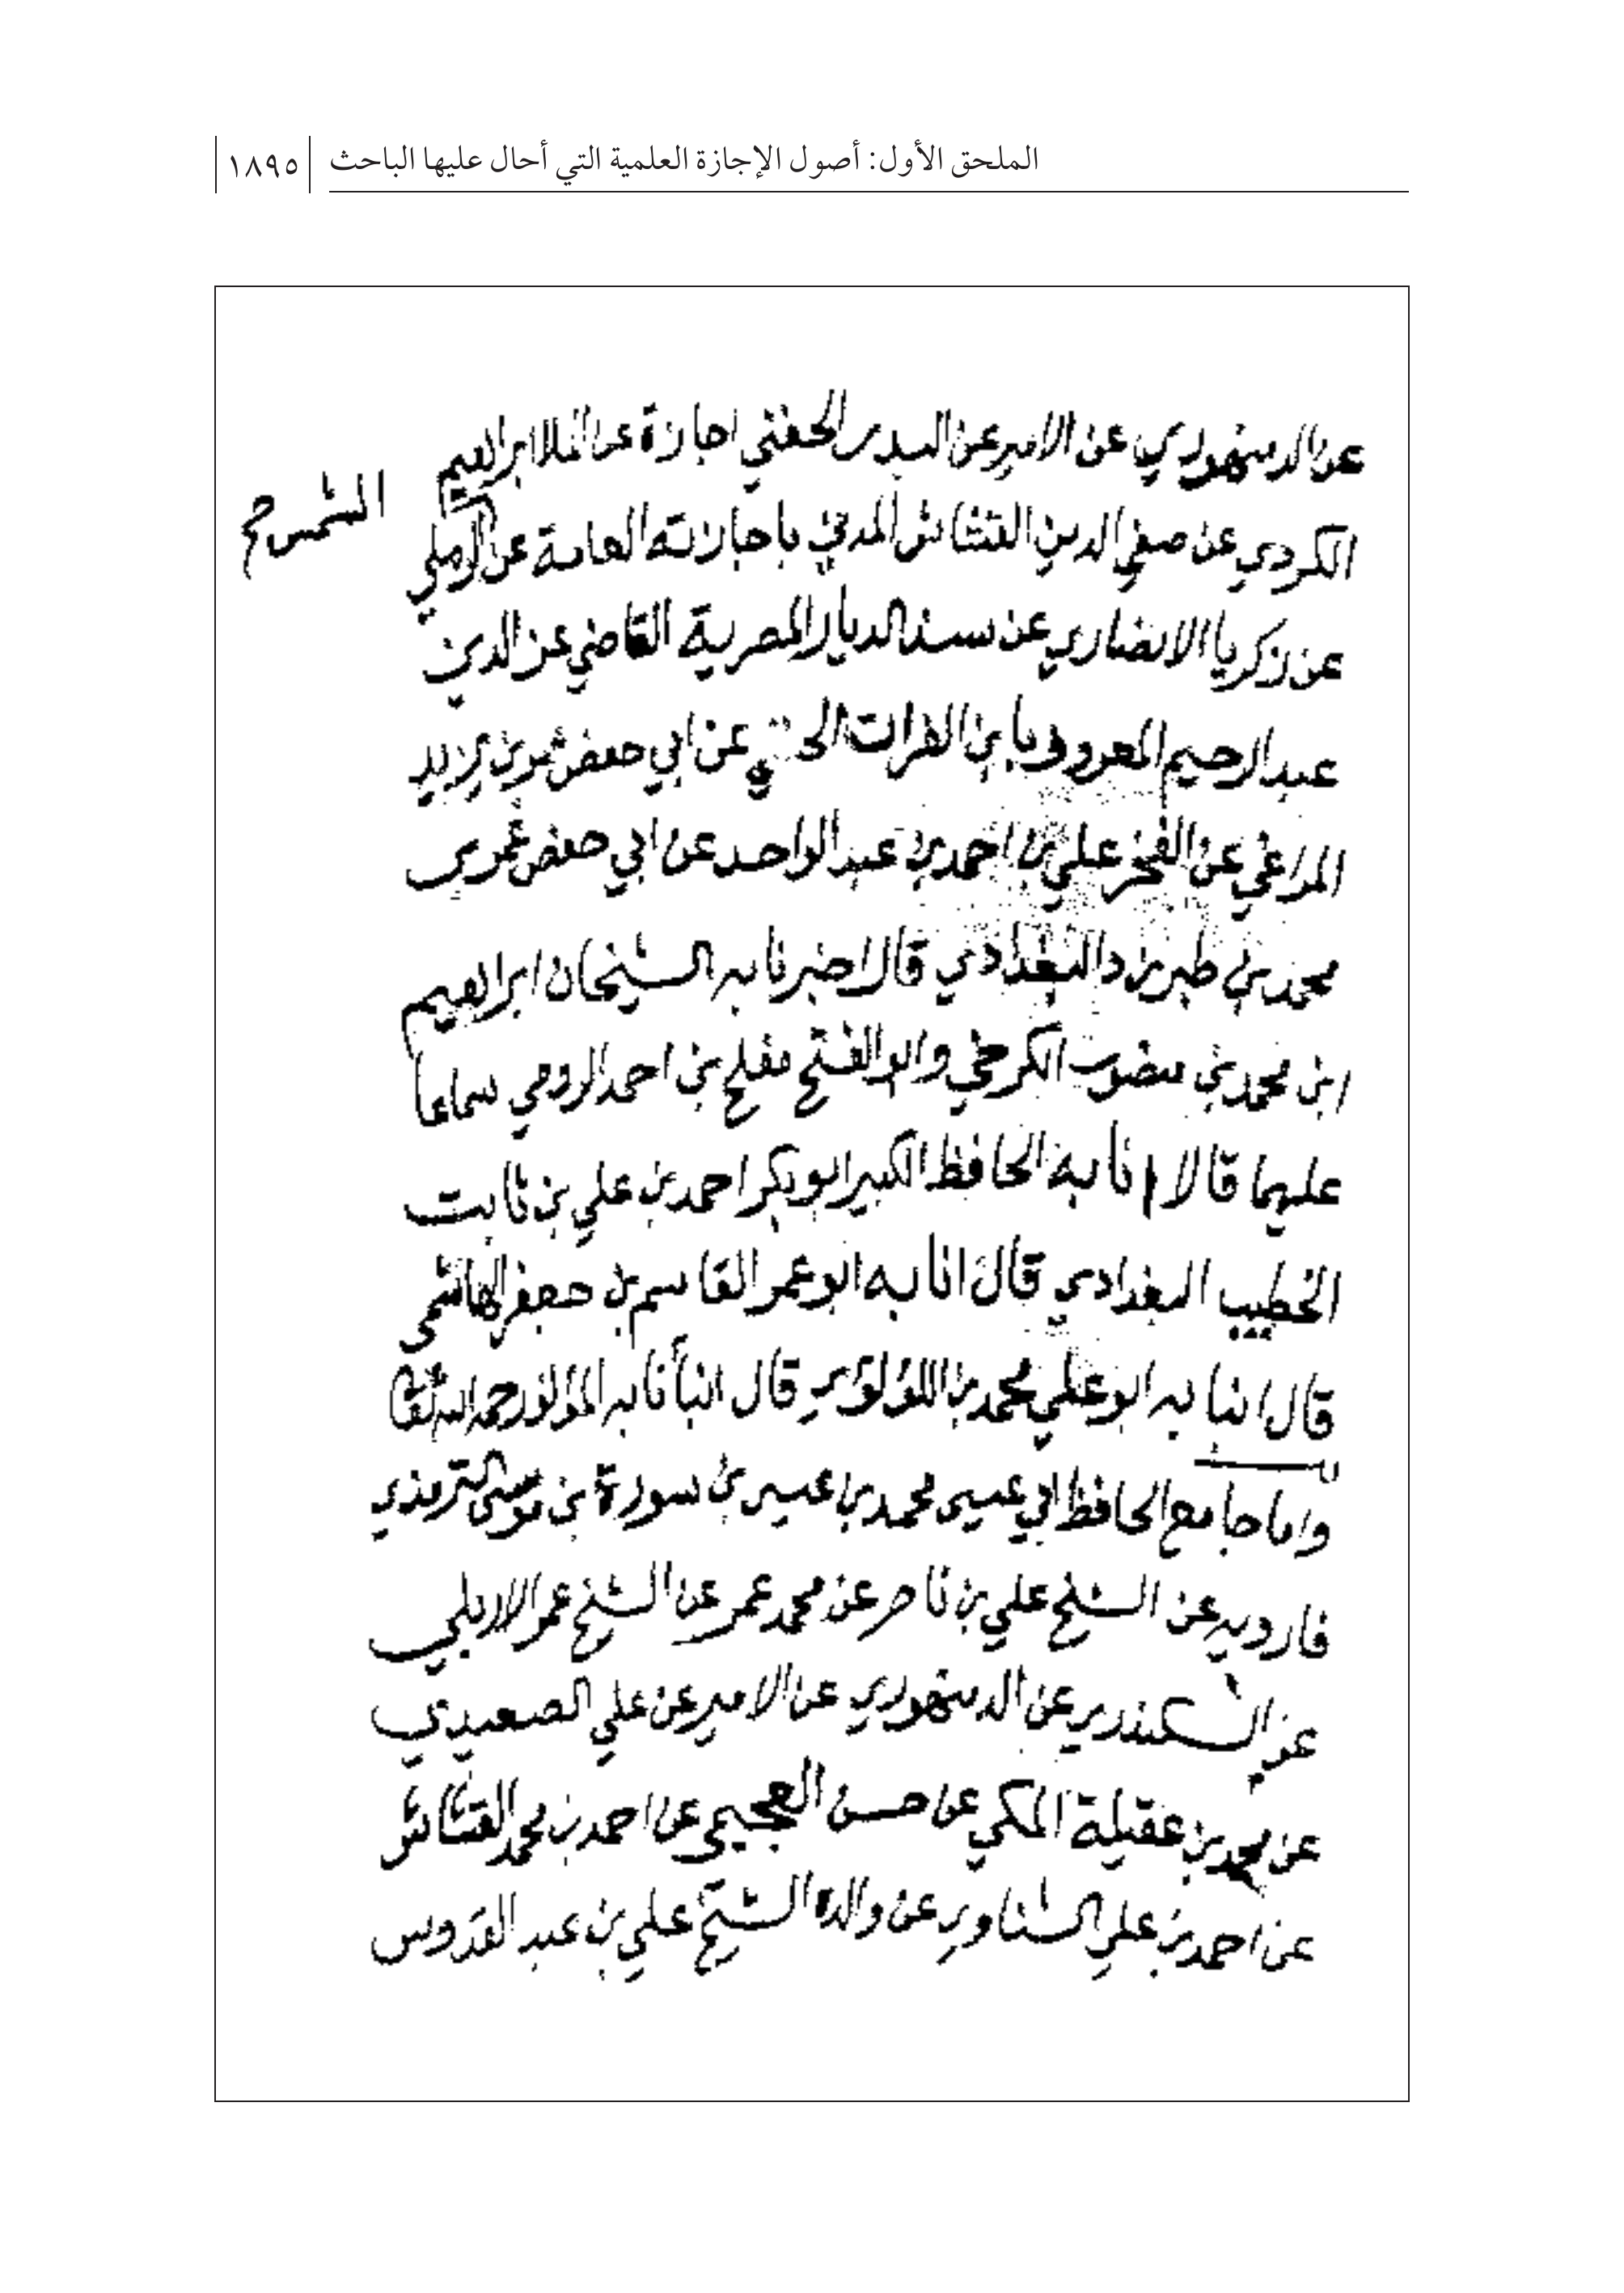 الملحق الأول: أصول الإجازة العلمية التي أحال عليها الباحث ١٨٩٥
عن الدمنهوري عن الامير عن البدر الحفني اجازة عن الملا ابراهيم
الكردي عن صفي الدين القشاش المدني باجازته العامة عن الرملي
الشمس
عن زكريا الانصاري عن مسند الديار المصرية القاضي عز الدين
عبد الرحيم المعروف بابن الفرات عن ابي حفص عمر بن يزيد
المراغي عن الفخر علي بن احمد بن عبد الواحد عن ابي حفص عمر بن
محمد بن طبرزد البغدادي قال اخبرنا به الشيخان ابراهيم
ابن محمد بن منصور الكرخي وابو الفتح مفلح بن احمد الرومي سماعا
عليهما قالا انا به الحافظ الكبير ابو بكر احمد بن علي بن ثابت
الخطيب البغدادي قال انا به ابو عمر القاسم بن جعفر الهاشمي
قال انبا به ابو علي محمد بن اللؤلؤي قال انبأنا به المؤلف رحمه الله تعالى
واما جامع الحافظ ابي عيسى محمد بن عيسى بن سورة بن موسى الترمذي
فارويه عن الشيخ علي بن ناصر عن محمد عمر عن الشيخ عمر الاربلي
عن السكندري عن الدمنهوري عن الامير عن علي الصعيدي
عن محمد بن عقيلة المكي عن حسن العجيمي عن احمد بن محمد القشاش
عن احمد بن علي الشناوي عن والده الشيخ علي بن عبد القدوس